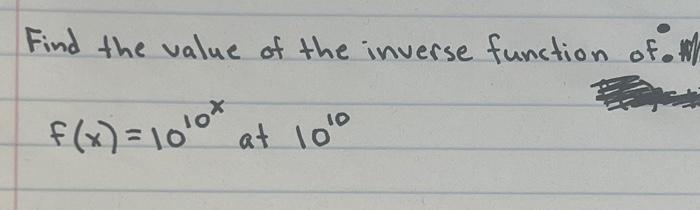 Find the value of the inverse function of:
f(x) = 10^10^x at 10^10